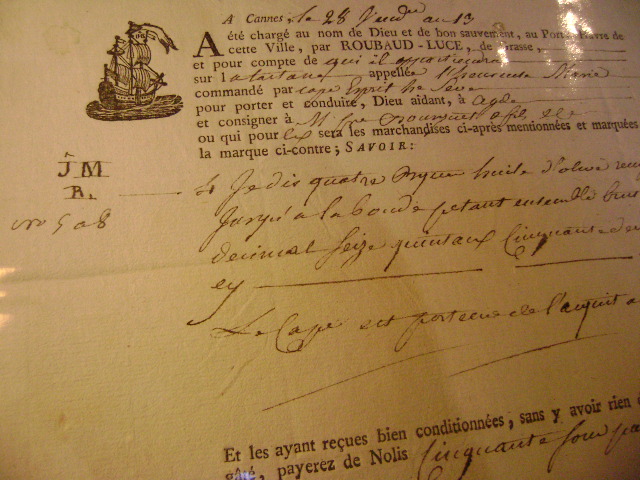 A Cannes, le 28 Vend an 13
A été chargé au nom de Dieu et de bon sauvement, au Port & Havre de
cette Ville, par ROUBAUD-LUCE, de Grasse,
et pour compte de qui il appartiendra
sur la tartane appellée l'heureuse Marie
commandé par cape Esprit
pour porter et conduire, Dieu aidant, à agde
et consigner à M
ou qui pour lex sera les marchandises ci-après mentionnées et marquées
la marque ci-contre; SAVOIR:
JM
R.
no 5 a 8
Je dis quatre huile d'olive
jusqu'a la bonde pesant ensemble brut
decimal seize quintaux cinquante
ey
Le Cape est porteur de l'acquit a
Et les ayant reçues bien conditionnées, sans y avoir rien
gâté, payerez de Nolis Cinquante sous pa